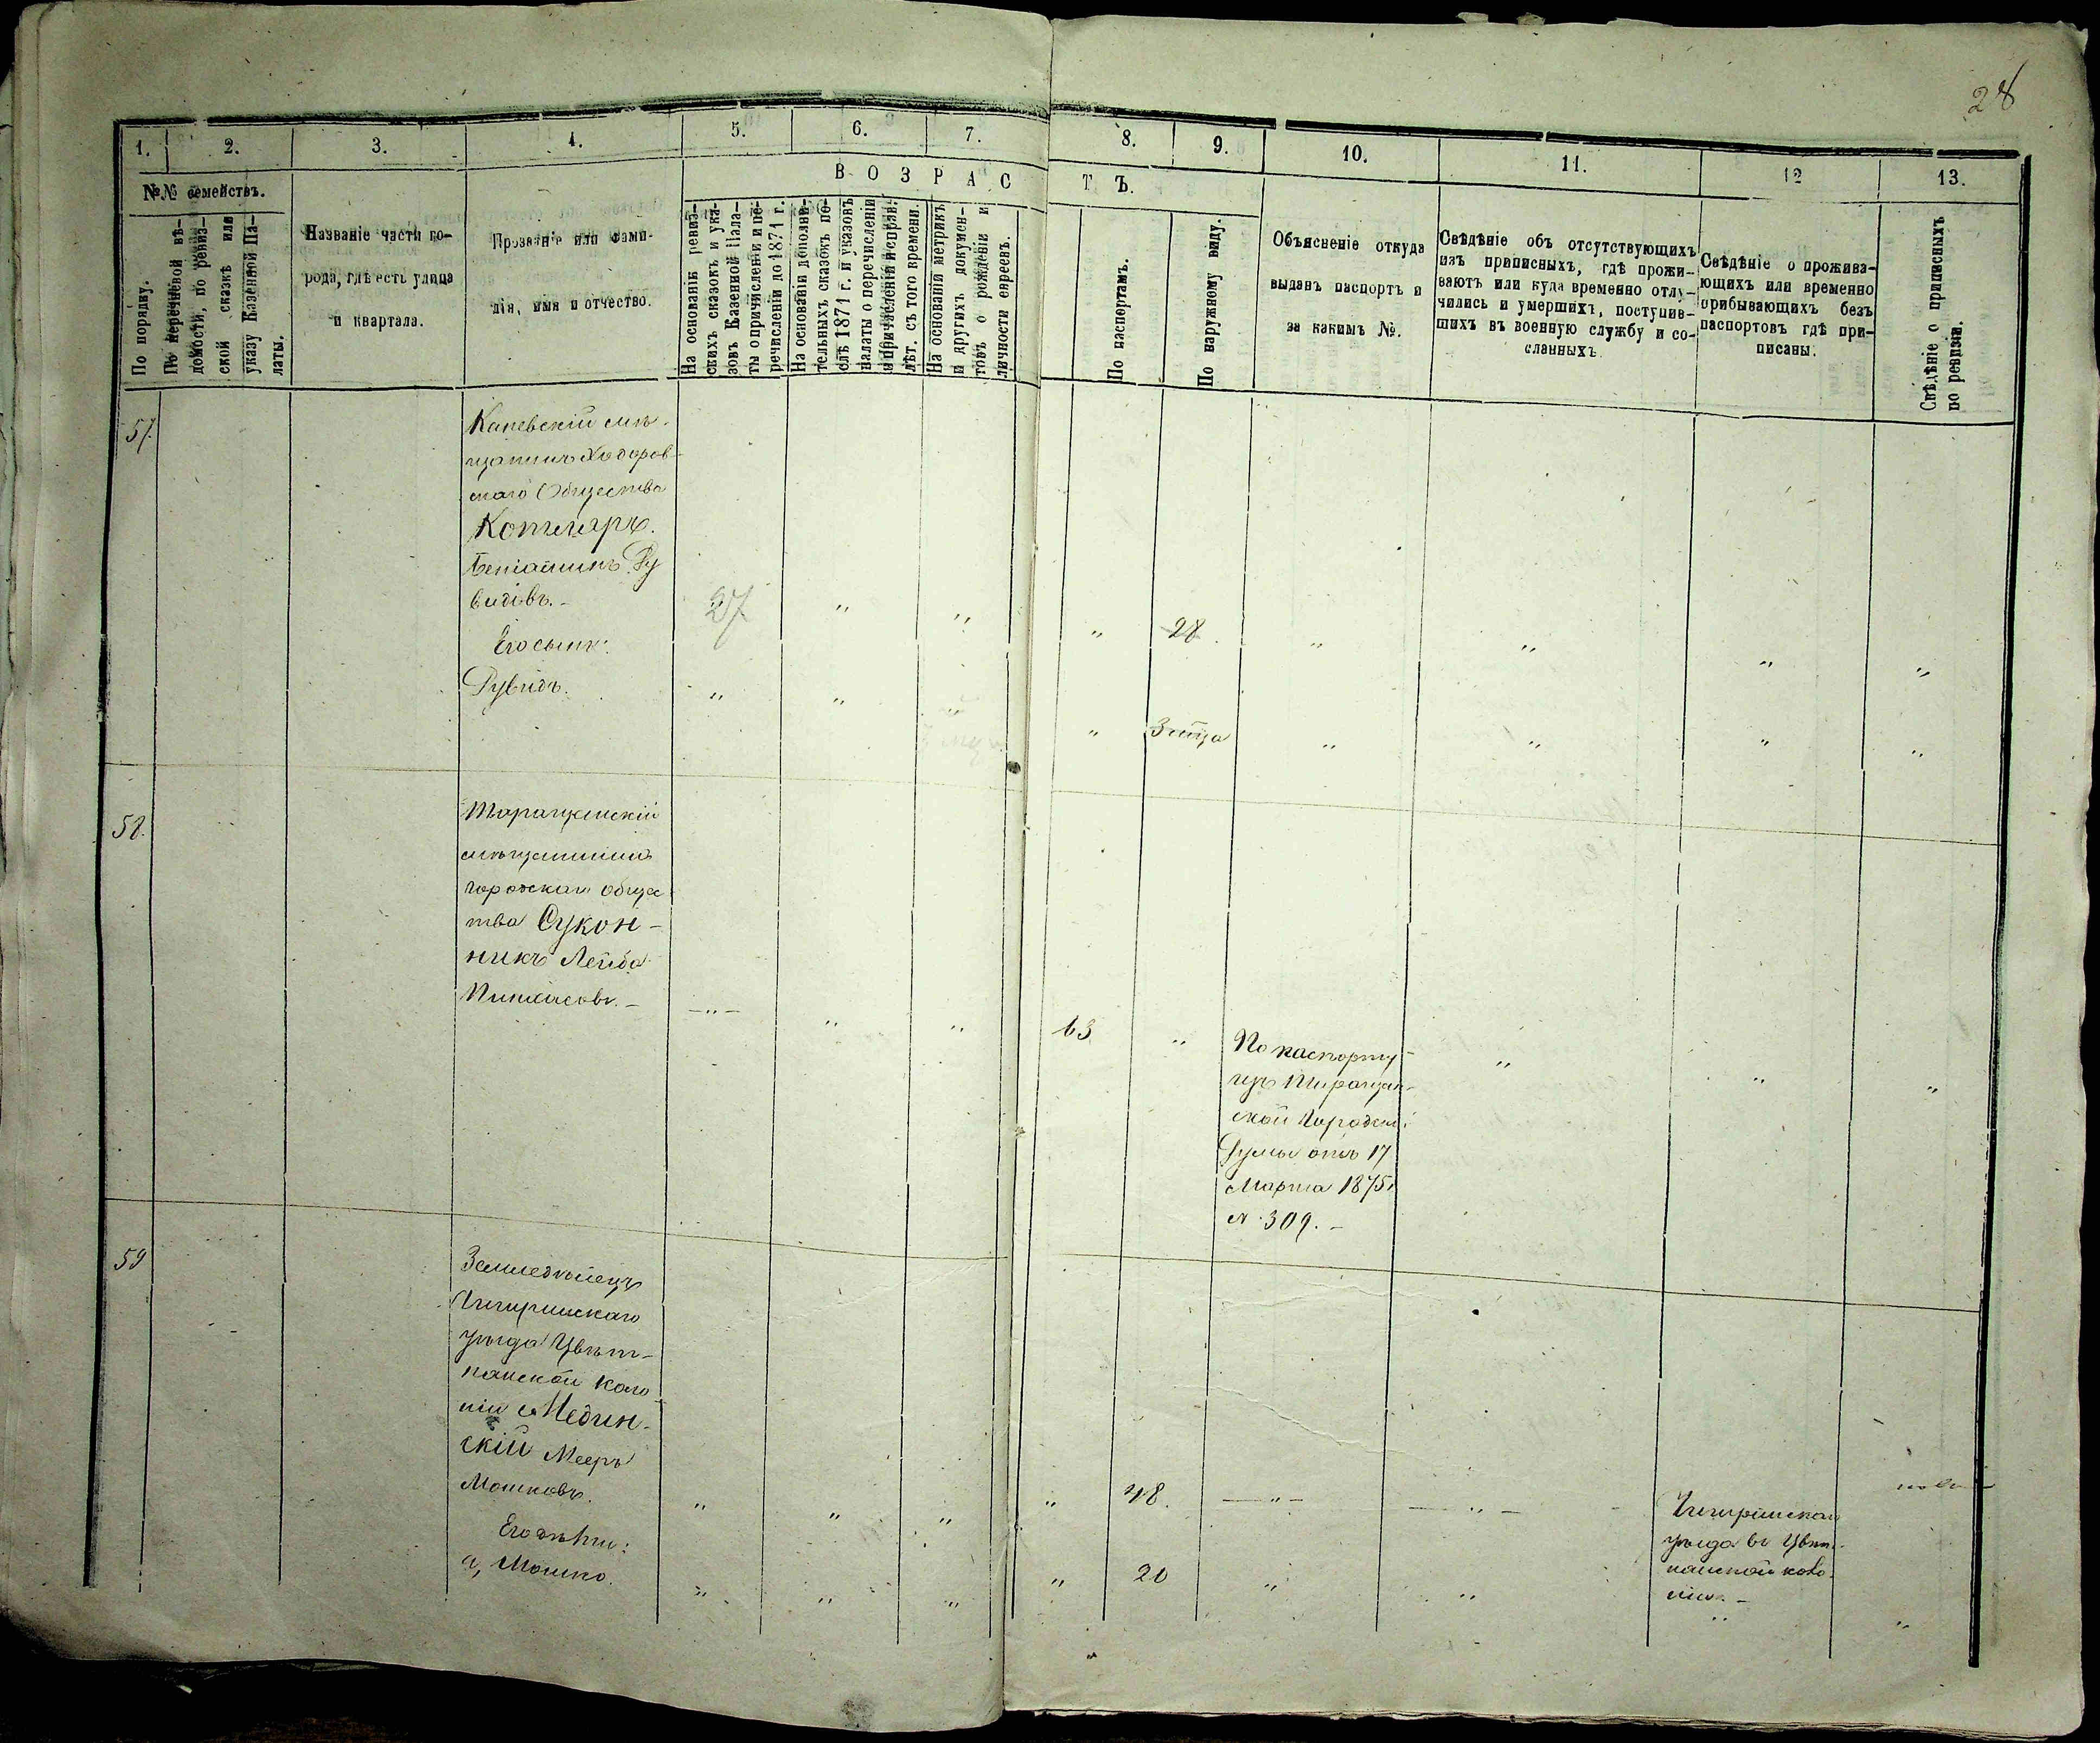 28
1.
2.
3.
4.
5.
6.
7.
8.
9.
10.
11.
12
13.
№№ семействъ.
По порядку.
По перечневой вѣ-
домости, по ревиз-
ской сказкѣ или
указу Казенной Па-
латы.
Названіе части го-
рода, гдѣ есть улица
и квартала.
Прозваніе или фами-
лія, имя и отчество.
ВОЗРАСТЪ.
На основаніи ревиз-
скихъ сказокъ и ука-
зовъ Казенной Пала-
ты о причисленіи и пе-
речисленіи до 1871 г.
На основаніи дополни-
тельныхъ сказокъ по-
слѣ 1871 г. и указовъ
палаты о перечисленіи
и причисленіи и справ.
лѣт. съ того времени.
На основаніи метрикъ
и другихъ докумен-
товъ о рожденіи и
личности евреевъ.
По паспортамъ.
По наружному виду.
Объясненіе откуда
выданъ паспортъ и
за какимъ №.
Свѣдѣніе объ отсутствующихъ
изъ приписныхъ, гдѣ прожи-
ваютъ или куда временно отлу-
чились и умершихъ, поступив-
шихъ въ военную службу и со-
сланныхъ.
Свѣдѣніе о прожива-
ющихъ или временно
прибывающихъ безъ
паспортовъ гдѣ при-
писаны.
Свѣдѣніе о приписныхъ
по ревизіи.
57.
Каневскій мѣ-
щанинъ Ходоров-
скаго Общества
Котляръ.
Беніаминъ Ру
видовъ.-
27 " " " 28. " " " "
Его сынъ:
Рувидъ.
" " " " " " " "
58.
Таращанскій
мѣщанинъ
городскаго общес
тва Сукон-
никъ Лейба
Пинхасовъ.-
-"- " " 63 " " " "
По паспорту
изъ Таращан-
ской Городской
Думы отъ 17
Марта 1875.
№ 309.-
59
Земледѣлецъ
Чигиринскаго
уѣзда Цвѣт-
нанской коло
ніи Мединскій
скій Мееръ
Мошковъ.
" " " " 48. -"- -"-
Чигиринскаго
уѣзда въ Цвѣт-
нанской коло-
ніи.-
Его дѣти:
а, Мошко.
" " " " 20 " " " "